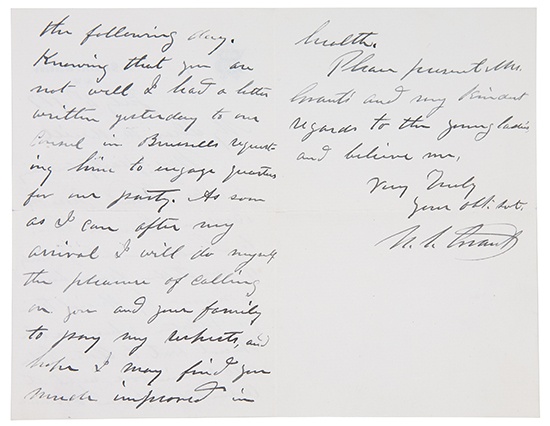 the following day.
Knowing that you are
not well I had a letter
written yesterday to our
Consul in Brussells request-
ing him to engage quarters
for our party. As soon
as I can after my
arrival I will do myself
the pleasure of calling
on you and your family
to pay my respects, and
hope I may find you
much improved in
health.
Please present Mrs.
Grant's and my kindest
regards to the young ladies
and believe me,
Very Truly
Your obt. svt.
U. S. Grant